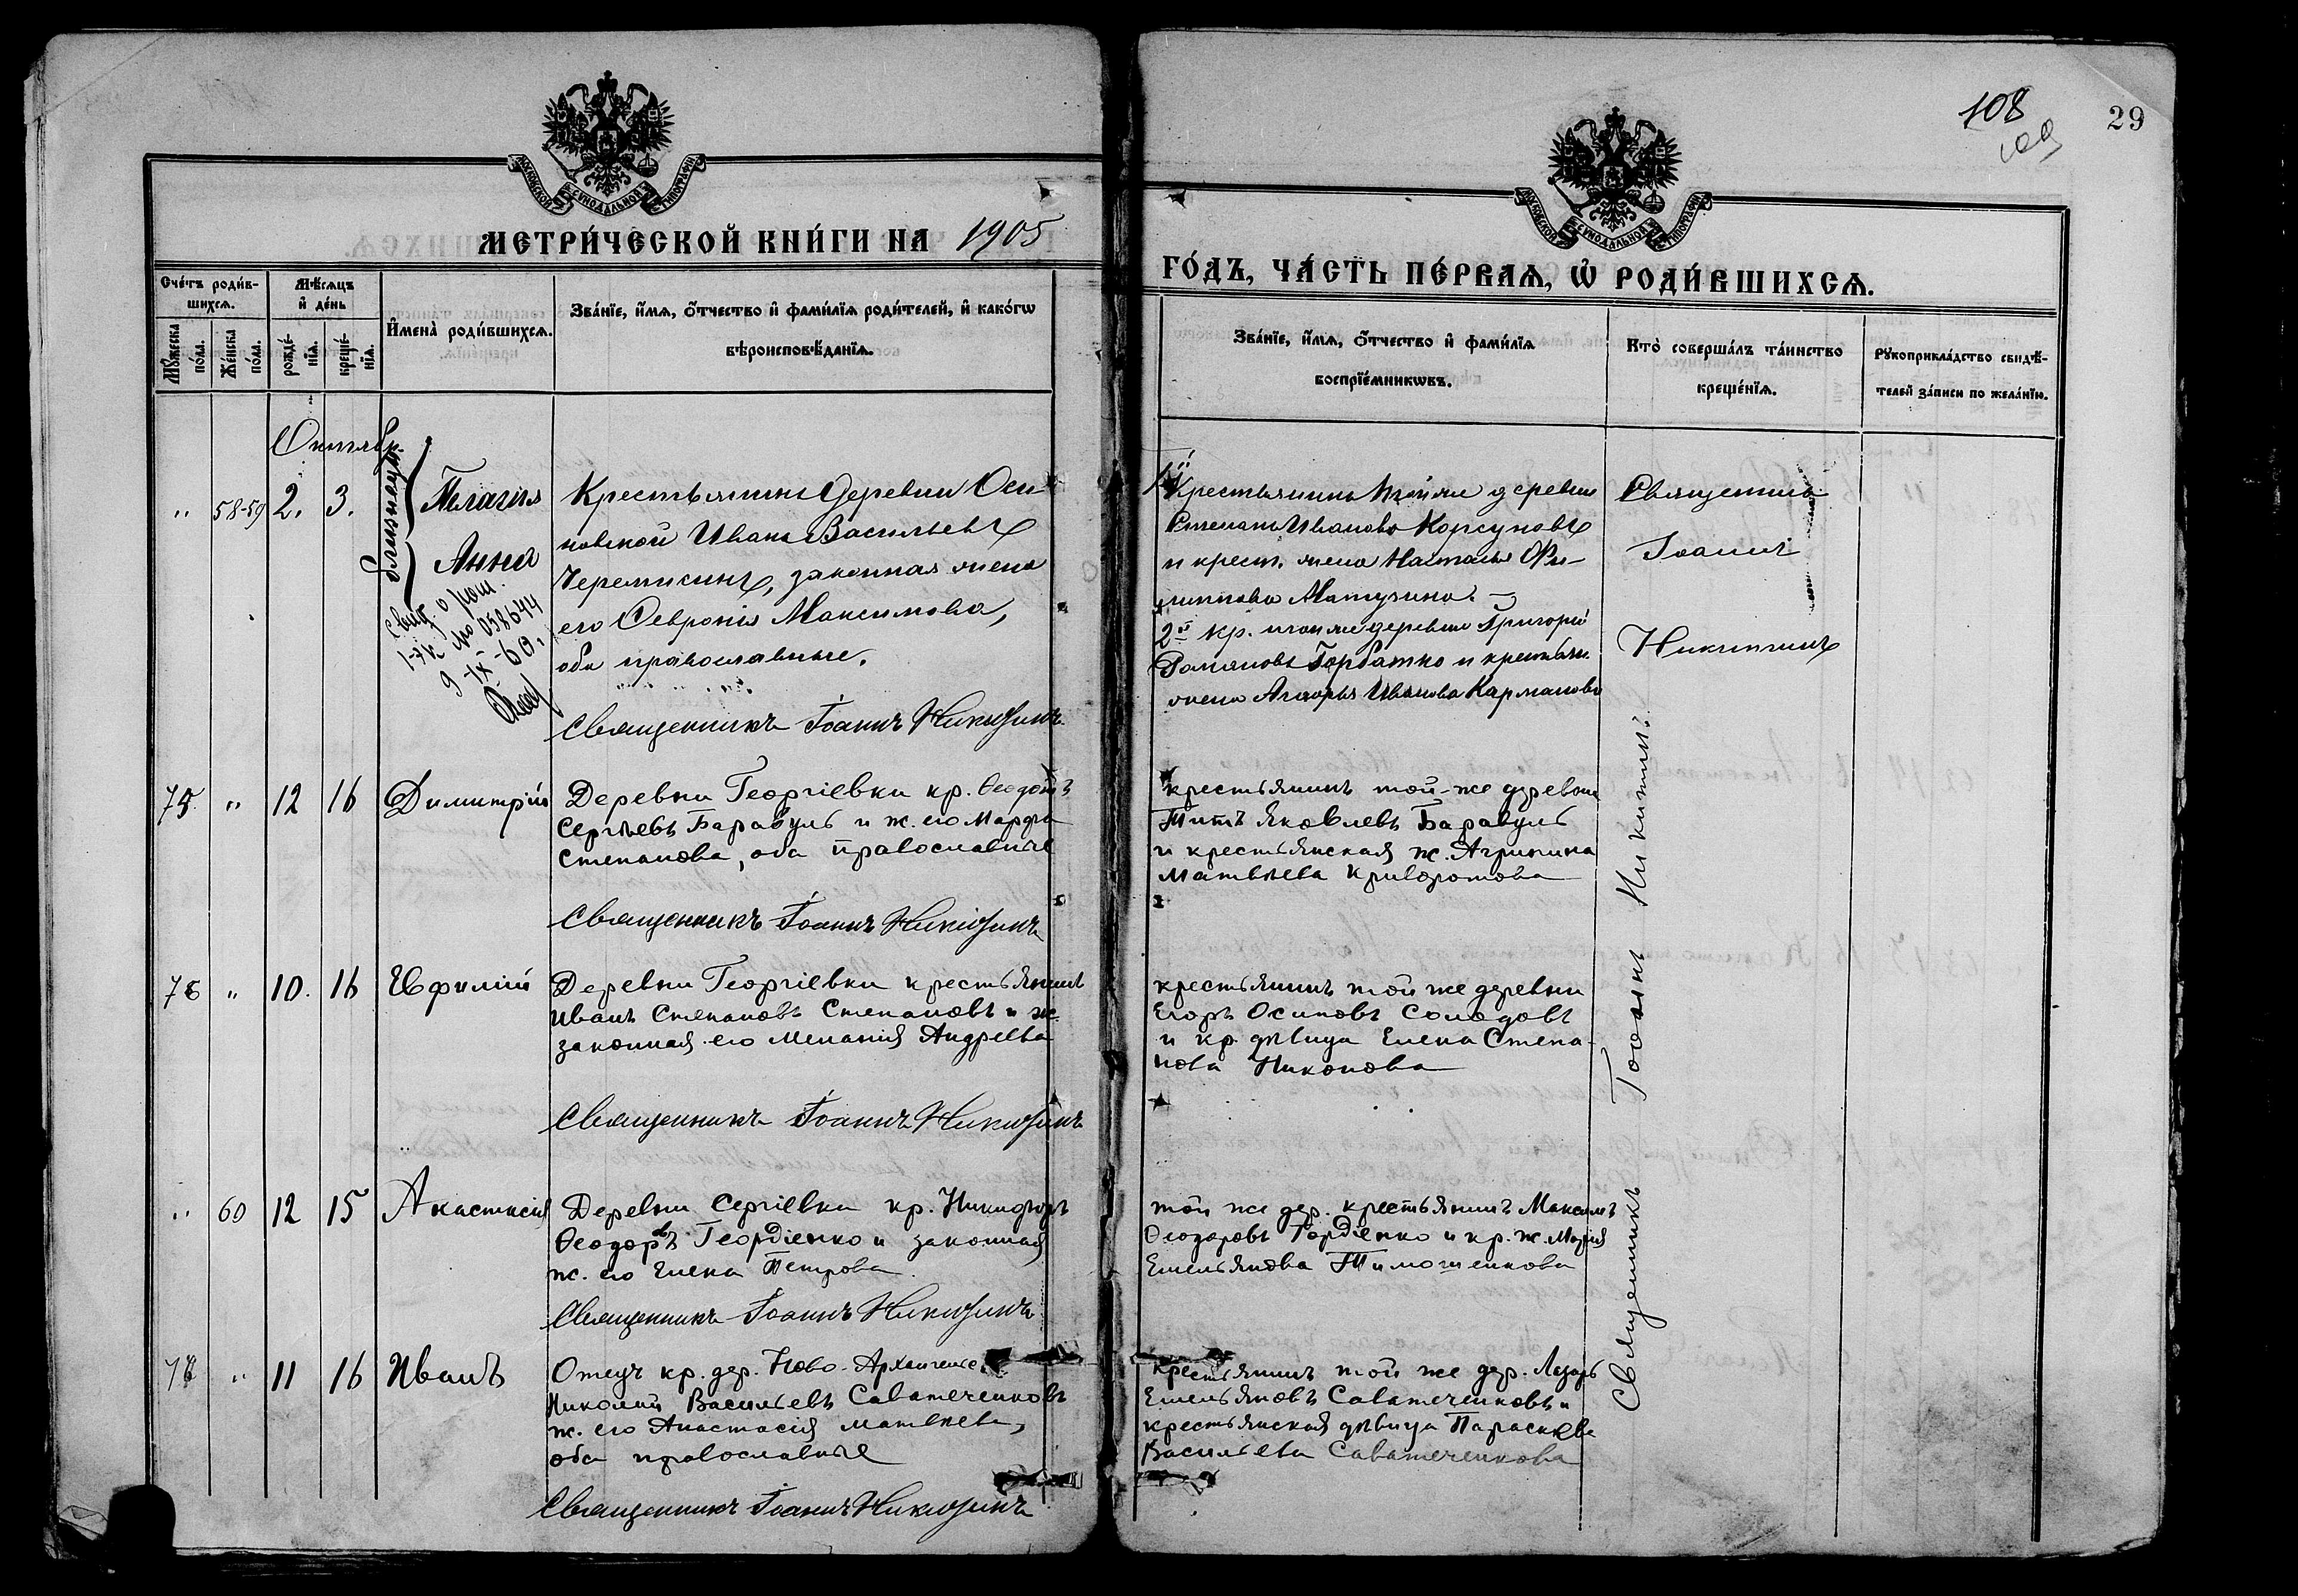 108
29
МОСКОВСКОЙ СУНОДАЛЬНОЙ ТИПОГРАФІИ
МОСКОВСКОЙ СУНОДАЛЬНОЙ ТИПОГРАФІИ
МЕТРИ́ЧЕСКОЙ КНИ́ГИ НА 1905
ГО́ДЪ, ЧА́СТЬ ПЕ́РВАЯ, Ѡ҆ РОДИ́ВШИХСЯ.
Сче́тъ роди́в-
шихся.
Мꙋ́жеска по́ла.
Же́нска по́ла.
Мѣ́сяцъ
и҆ де́нь
рожде́-нїя.
креще́-нїя.
И҆мена̀ роди́вшихся.
Зва́нїе, и҆́мя, ѻ҆́тчество и҆ фами́лїя роди́телей, и҆ како́гѡ
вѣроисповѣ́данїя.
Зва́нїе, и҆́мя, ѻ҆́тчество и҆ фами́лїя
воспрїе́мникѡвъ.
Кто̀ соверша́лъ та́инство
креще́нїя.
Рꙋкоприкла́дство свидѣ́-
телей за́писи по жела́нїю.
Октябр.
" 58-59 2. 3.
близнецы
Пелагія
Анна
Свид. о рож.
1-ЭК № 038644
9-IX-60.
Крестьянинъ деревни Оси-
новской Иванъ Васильевъ
Черемисинъ, законная жена
его Феvронія Максимова,
оба православные.
Священникъ Іоаннъ Никитинъ
1й Крестьянинъ той же деревни
Степанъ Ивановъ Корсуновъ
и крест. жена Наталья Фи-
липпова Матузина.
2й кр. той же деревни Григорій
Горбатко и крестьян.
жена Ивановa Карманова
Священникъ
Іоаннъ
Никитинъ
75 " 12 16 Димитрій
Деревни Георгіевки кр. Ѳеодотъ
Сергѣевъ Баравуль и ж. его Марфа
Степанова, оба православные
Священникъ Іоаннъ Никитинъ
крестьянинъ той-же деревни
Титъ Яковлевъ Баравуль
и крестьянская ж. Агрипина
Матвѣева Криворотова
76 " 10. 16 Евфимій
Деревни Георгіевки крестьянинъ
Иванъ Степановъ Степановъ и ж.
законная его Меланія Андреева
Священникъ Іоаннъ Никитинъ
крестьянинъ той же деревни
Егоръ Осиповъ Солодовъ
и кр. дѣвица Елена Степа-
нова Никонова
" 60 12 15 Анастасія
Деревни Сергіевки кр. Никифоръ
Ѳеодоровъ Гордіенко и законная
ж. его Елена Петрова
Священникъ Іоаннъ Никитинъ
той же дер. крестьянинъ Максимъ
Ѳеодоровъ Гордіенко и кр. ж. Марія
Емельянова Тимошенкова
" 11 16 Иванъ
Отецъ кр. дер. Ново-Архангельс
Николай Васильевъ Саватеченковъ
ж. его Анастасія Матвѣева,
оба православные
Священникъ Іоаннъ Никитинъ
крестьянинъ той же дер. Лазарь
Емельяновъ Саватеченковъ и
крестьянская дѣвица Параскева
Васильева Саватеченкова
Священникъ Іоаннъ Никитинъ